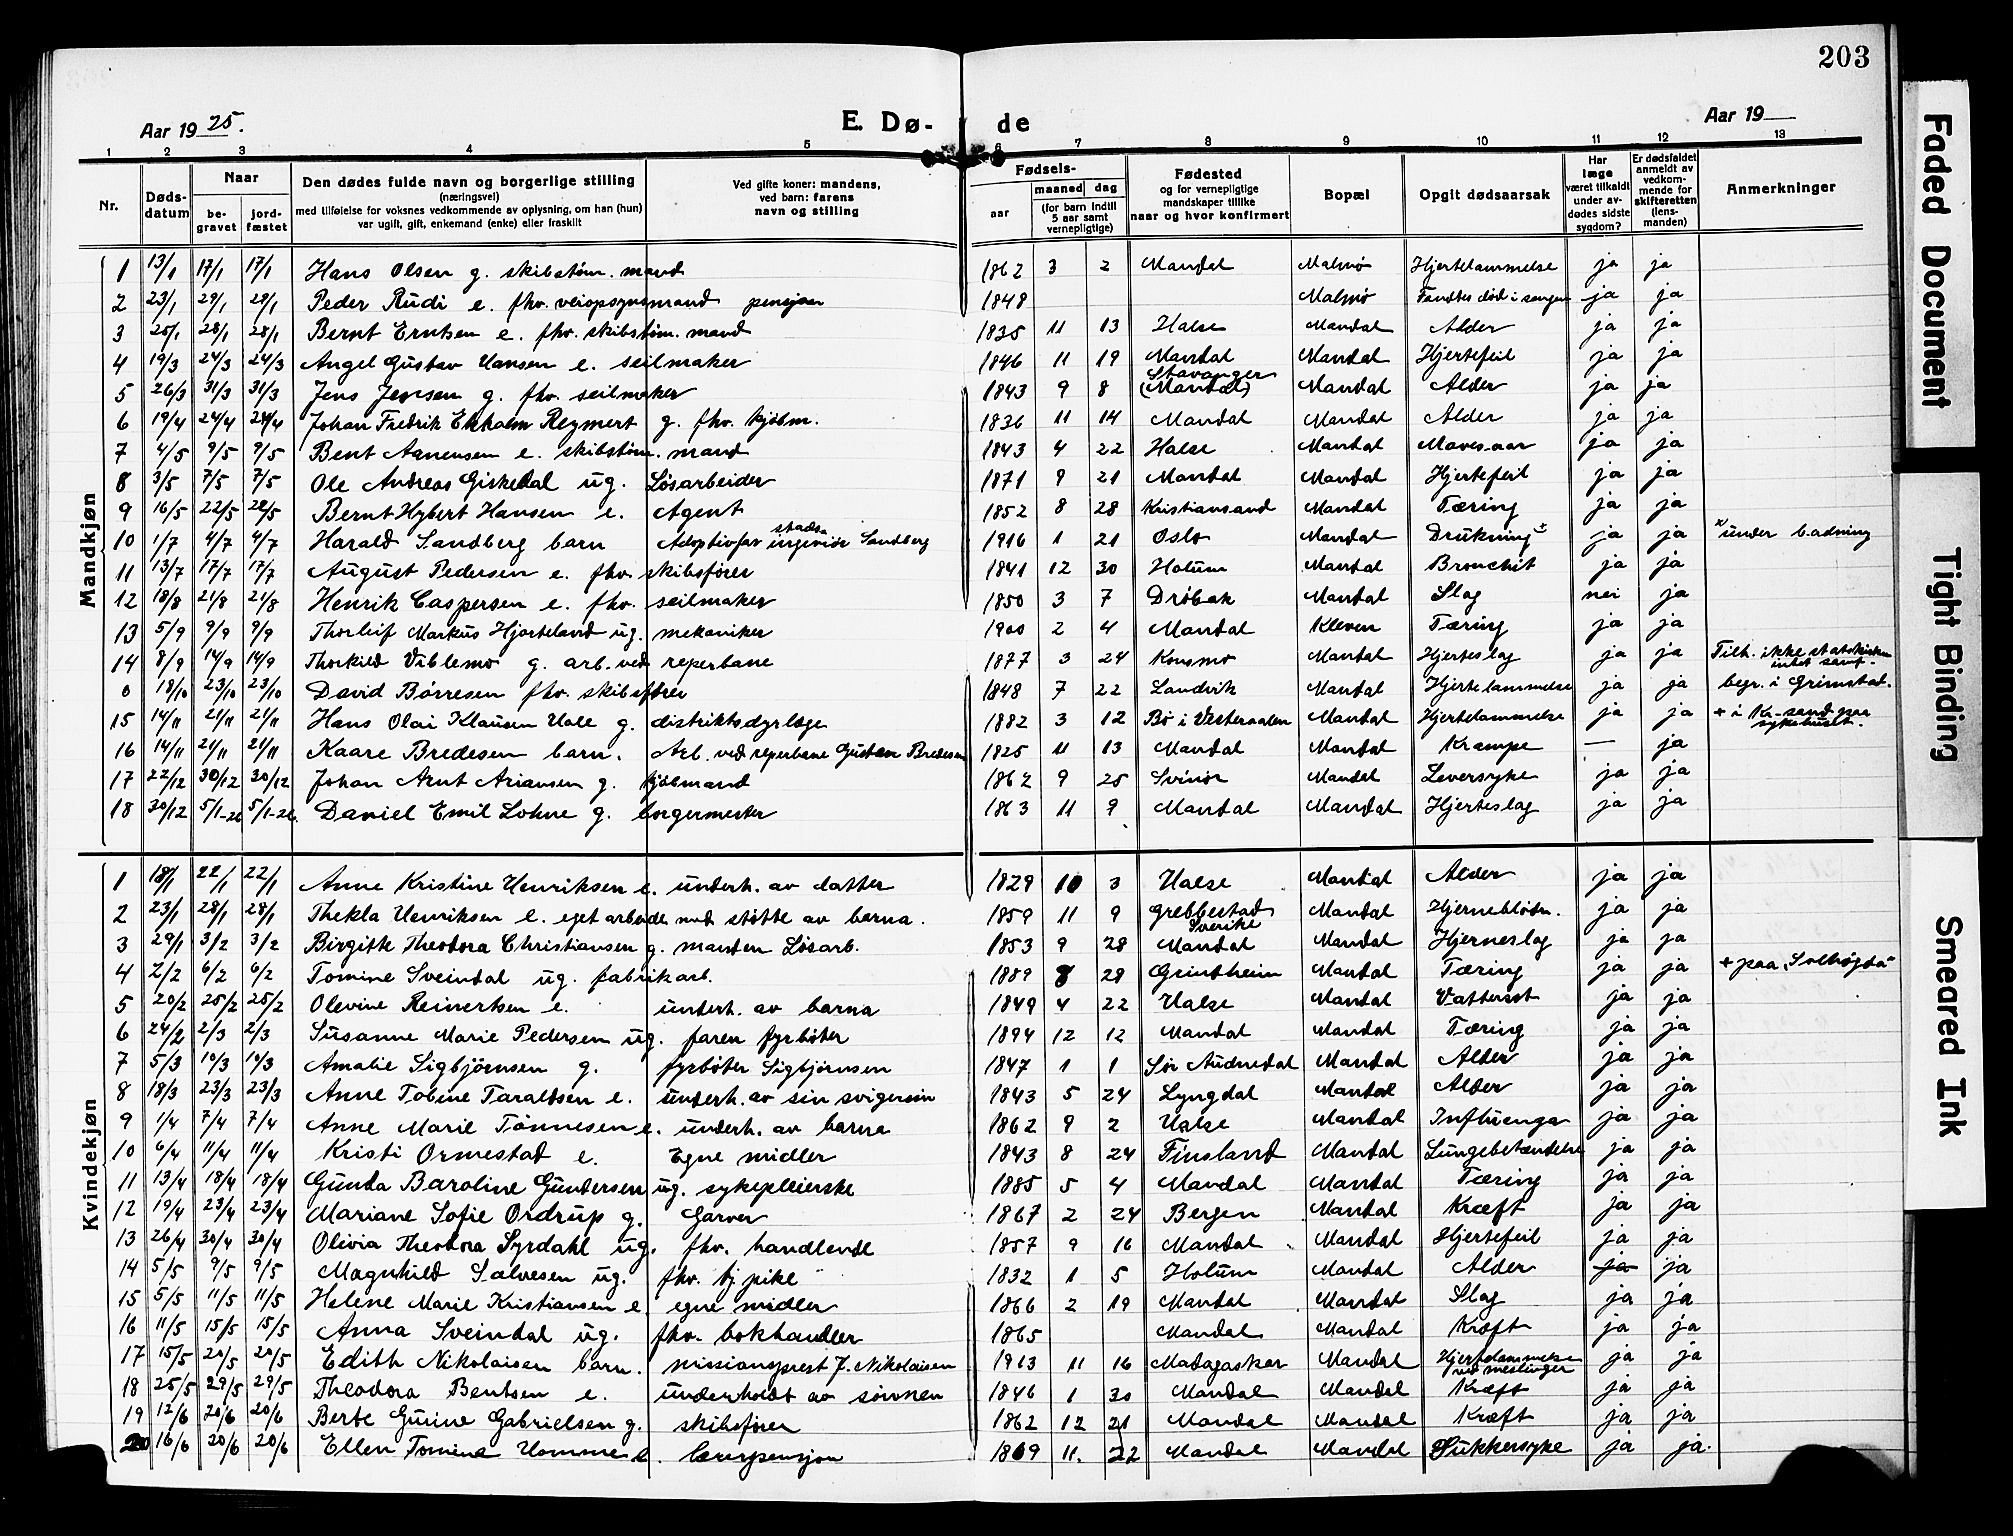 203
Aar 1925.
E. Dø- de
Aar 19
1 2 3 4 5 6 7 8 9 10 11 12 13
Nr.
Døds-datum
Naar
be-gravet
jord-fæstet
Den dødes fulde navn og borgerlige stilling
(næringsvei)
med tilføielse for voksnes vedkommende av oplysning, om han (hun)
var ugift, gift, enkemand (enke) eller fraskilt
Ved gifte koner: mandens,
ved barn: farens
navn og stilling
Fødsels-
aar
maaned dag
(for barn indtil 5 aar samt vernepligtige)
Fødested
og for vernepligtige
mandskaper tillike
naar og hvor konfirmert
Bopæl
Opgit dødsaarsak
Har læge været tilkaldt under av-dødes sidste sygdom?
Er dødsfaldet anmeldt av vedkom-mende for skifteretten (lens-manden)
Anmerkninger
Mandkjøn
1 13/1 17/1 17/1 Hans Olsen g. skibstøm. mand 1862 3 2 Mandal Malmø Hjertelammelse ja ja
2 23/1 29/1 29/1 Peder Rudi e. fhv. veiopsynsmand pensjon 1848 Malmø Fandtes død i sengen ja ja
3 25/1 28/1 28/1 Bernt Erntsen e. fhv. skibstøm. mand 1835 11 13 Halse Mandal Alder ja ja
4 19/3 24/3 24/3 Angel Gustav Hansen e. seilmaker 1846 11 19 Mandal Mandal Hjertefeil ja ja
5 26/3 31/3 31/3 Jens Jensen g. fhv. seilmaker 1843 9 8 Stavanger (Mandal) Mandal Alder ja ja
6 19/4 24/4 24/4 Johan Fredrik Ekholm Reymert g. fhv. kjøbm. 1836 11 14 Mandal Mandal Alder ja ja
7 4/5 9/5 9/5 Bent Aanensen e. skibstøm. mand 1843 4 22 Halse Mandal Mavesaar ja ja
8 3/5 7/5 7/5 Ole Andreas Giskedal ug. Løsarbeider 1871 9 21 Mandal Mandal Hjertefeil ja ja
9 16/5 22/5 22/5 Bernt Hybert Hansen e. Agent 1852 8 28 Kristiansand Mandal Tæring ja ja
10 1/7 4/7 4/7 Harald Sandberg barn Adoptivfar stads ingeniør Sandberg 1916 1 21 Oslo Mandal Drukning + ja ja x under badning
11 13/7 17/7 17/7 August Pedersen e. fhv. skibsfører 1841 12 30 Holum Mandal Bronchit ja ja
12 18/8 21/8 21/8 Henrik Caspersen e. fhv. seilmaker 1850 3 7 Drøbak Mandal Slag nei ja
13 5/9 9/9 9/9 Thorleif Markus Hjorteland ug. mekaniker 1900 2 4 Mandal Kleven Tæring ja ja
14 8/9 14/9 14/9 Thorkild Viblemo g. arb. ved reperbane 1877 3 24 Konsmo Mandal Hjerteslag ja ja Tilh. ikke statskirken intet samf.
0 18/10 23/10 23/10 David Børresen fhv. skibsfører 1848 7 22 Landvik Mandal Hjertelammelse ja ja begr. i Grimstad.
15 14/11 21/11 21/11 Hans Olai Klausen Valle g. distriktsdyrlæge 1882 3 12 Bø i Vesteraalen Mandal Hjertelammelse ja ja + i Kr-sand paa sykehuset.
16 14/11 21/11 21/11 Kaare Bredesen barn. Arb. ved reperbane Gustav Bredesen 1825 11 13 Mandal Mandal Krampe — ja
17 22/12 30/12 30/12 Johan Arnt Ariansen g. kjøbmand 1862 9 25 Svinør Mandal Leversyke ja ja
18 30/12 5/1-26 5/1-26. Daniel Emil Lohne g. borgermester 1863 11 9 Mandal Mandal Hjerteslag ja ja
Kvindekjøn
1 18/1 22/1 22/1 Anne Kristine Henriksen e. underh. av datter 1829 10 3 Halse Mandal Alder ja ja
2 23/1 28/1 28/1 Thekla Henriksen e. eget arbeide med støtte av barna. 1859 11 9 Grebbestad Sverike Mandal Hjerneblødn. ja ja
3 29/1 3/2 3/2 Birgitte Theodora Christiansen g. manden Løsarb. 1853 9 28 Mandal Mandal Hjerneslag ja ja
4 2/2 6/2 6/2 Tomine Sveindal ug. fabrikarb. 1889 8 28 Grindheim Mandal Tæring ja ja + paa "Solhøgda"
5 20/2 25/2 25/2 Olevine Reinertsen e. underh. av barna 1849 4 22 Halse Mandal Vattersot ja ja
6 24/2 2/3 2/3 Susanne Marie Pedersen ug. faren fyrbøter 1894 12 12 Mandal Mandal Tæring ja ja
7 5/3 10/3 10/3 Amalie Sigbjørnsen g. fyrbøter Sigbjørnsen 1847 1 1 Sør Audnedal Mandal Alder ja ja
8 18/3 23/3 23/3 Anne Tobine Taraldsen e. underh. av sin svigersøn 1843 5 24 Lyngdal Mandal Alder ja ja
9 1/4 7/4 7/4 Anne Marie Tønnesen e. underh. av barna 1862 9 2 Halse Mandal Influenza ja ja
10 6/4 11/4 11/4 Kristi Ormestad e. Egne midler 1843 8 24 Finsland Mandal Lungebetændelse ja ja
11 13/4 18/4 18/4 Gunda Baroline Gundersen ug. sykepleierske 1885 5 4 Mandal Mandal Tæring ja ja
12 19/4 23/4 23/4 Mariane Sofie Ordrup g. Garver 1867 2 24 Bergen Mandal Kræft ja ja
13 26/4 30/4 30/4 Olivia Theodora Syrdahl ug. fhv. handlende 1857 9 16 Mandal Mandal Hjertefeil ja ja
14 5/5 9/5 9/5 Magnhild Salvesen ug. fhv. tj. pike 1832 1 5 Holum Mandal Alder ja ja
15 5/5 11/5 11/5 Helene Marie Kristiansen e. egne midler 1866 2 19 Mandal Mandal Slag ja ja
16 11/5 15/5 15/5 Anna Sveindal ug. fhv. bokhandler 1865 Mandal Mandal Kræft ja ja
17 15/5 20/5 20/5 Edith Nikolaisen barn. missionsprest J. Nikolaisen 1913 11 16 Madagaskar Mandal Hjertelammelse ved meslinger ja ja
18 25/5 29/5 29/5 Theodora Bentsen e. underholdt av sønnen 1846 1 30 Mandal Mandal Kræft ja ja
19 12/6 20/6 20/6 Berte Gurine Gabrielsen g. skibsfører 1862 12 21 Mandal Mandal Kræft ja ja
20 16/6 20/6 20/6 Ellen Tomine Homme e. lærerpensjon 1869 11. 22 Mandal Mandal Sukkersyke ja ja.
Faded Document
Tight Binding
Smeared Ink